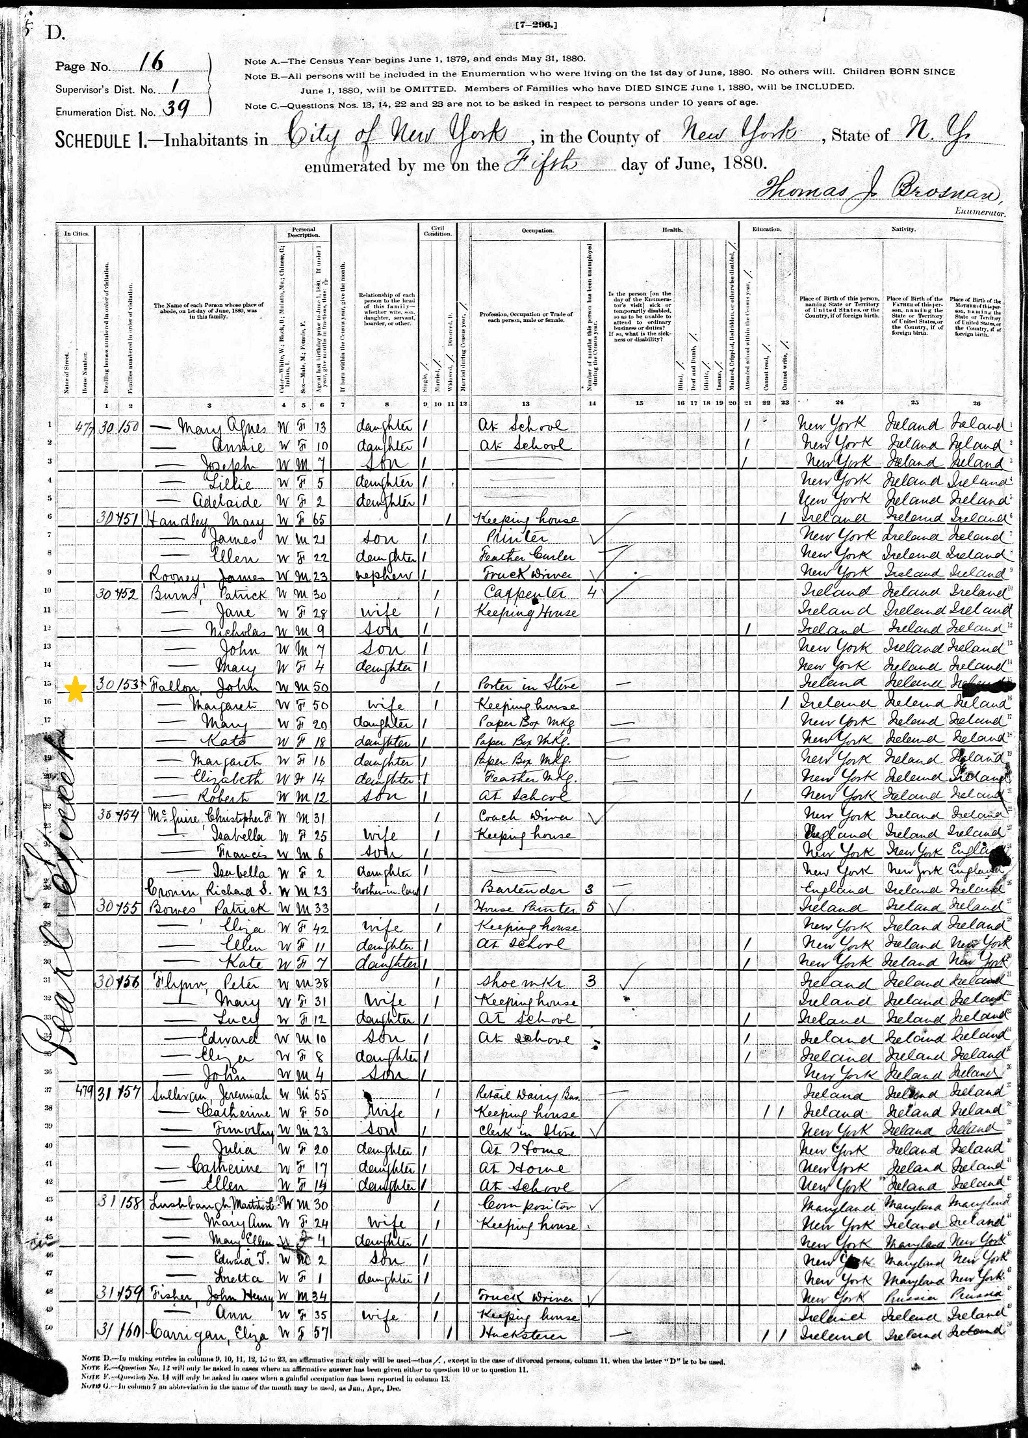 D.
[7-296.]
Page No. 16
Supervisor's Dist. No. 1
Enumeration Dist. No. 39
Note A.—The Census Year begins June 1, 1879, and ends May 31, 1880.
Note B.—All persons will be included in the Enumeration who were living on the 1st day of June, 1880. No others will. Children BORN SINCE
June 1, 1880, will be OMITTED. Members of Families who have DIED SINCE June 1, 1880, will be INCLUDED.
Note C.—Questions Nos. 13, 14, 22 and 23 are not to be asked in respect to persons under 10 years of age.
SCHEDULE 1.—Inhabitants in City of New York, in the County of New York, State of N. Y.
enumerated by me on the Fifth day of June, 1880.
Thomas J Brosnan,
Enumerator.
In Cities. Personal Description. Civil Condition. Occupation. Health. Education. Nativity.
Name of Street. House Number.
The Name of each Person whose place of abode, on 1st day of June, 1880, was in this family.
Relationship of each person to the head of this family—whether wife, son, daughter, servant, boarder, or other.
Profession, Occupation or Trade of each person, male or female.
Place of Birth of this person, naming State or Territory of United States, or the Country, if of foreign birth.
1 2 3 4 5 6 7 8 9 10 11 12 13 14 15 16 17 18 19 20 21 22 23 24 25 26
Pearl Street
1 477 30 150 — Mary Agnes W F 13 daughter / At School / New York Ireland Ireland
2 — Annie W F 10 daughter / At School / New York Ireland Ireland
3 — Joseph W M 7 son / / New York Ireland Ireland
4 — Lillie W F 5 daughter / New York Ireland Ireland
5 — Adelaide W F 2 daughter / New York Ireland Ireland
6 30 151 Handley, Mary W F 65 / Keeping house / Ireland Ireland Ireland
7 — James W M 21 son / Printer New York Ireland Ireland
8 — Ellen W F 22 daughter / Feather Curler New York Ireland Ireland
9 Rooney, James W M 23 nephew / Truck Driver New York Ireland Ireland
10 30 152 Burns, Patrick W M 30 / Carpenter 4 Ireland Ireland Ireland
11 — Jane W F 28 wife / Keeping House Ireland Ireland Ireland
12 — Nicholas W M 9 son / / Ireland Ireland Ireland
13 — John W M 7 son / New York Ireland Ireland
14 — Mary W F 4 daughter / New York Ireland Ireland
15 30 153 Fallon, John W M 50 / Porter in Store — Ireland Ireland
16 — Margaret W F 50 wife / Keeping house / Ireland Ireland Ireland
17 — Mary W F 20 daughter / Paper Box Mkg — New York Ireland Ireland
— Kate W F 18 daughter / Paper Box Mkg. — New York Ireland Ireland
— Margareth W F 16 daughter / Paper Box Mkg. — New York Ireland Ireland
— Elizabeth W F 14 daughter / Feather Mkg. — New York Ireland Ireland
— Robert W M 12 son / At School / New York Ireland Ireland
30 154 McGuire, Christopher F W M 31 / Coach Driver New York Ireland Ireland
— Isabella W F 25 wife / Keeping house England Ireland Ireland
— Francis W M 6 son / New York New York England
— Isabella W F 2 daughter / New York New York England
Cronin Richard S. W M 23 brother-in-law / Bartender 3 — England Ireland Ireland
30 155 Bowes, Patrick W M 33 / House Painter 5 Ireland Ireland Ireland
— Eliza W F 42 wife / Keeping house New York Ireland Ireland
— Ellen W F 11 daughter / At School / New York Ireland New York
30 — Kate W F 7 daughter / / New York Ireland New York
31 30 156 Flynn, Peter W M 38 / Shoe mkr 3 Ireland Ireland Ireland
32 — Mary W F 31 Wife / Keeping house Ireland Ireland Ireland
33 — Lucy W F 12 daughter / At School / Ireland Ireland Ireland
— Edward W M 10 son / At School / Ireland Ireland Ireland
— Eliza F 8 daughter / / Ireland Ireland Ireland
36 — John W M 4 son / New York Ireland Ireland
37 479 31 157 Sullivan, Jeremiah W M 55 / Retail Dairy Bus. Ireland Ireland Ireland
38 — Catherine W F 50 Wife / Keeping house / / Ireland Ireland Ireland
39 — Timothy W M 23 son / Clerk in Store New York Ireland Ireland
40 — Julia W F 20 daughter / At Home New York Ireland Ireland
41 — Catherine W F 17 daughter / At Home New York Ireland Ireland
42 — Ellen W F 14 daughter / At School New York Ireland Ireland
43 31 158 W M 30 / Compositor Maryland Maryland Maryland
44 — Mary Ann W F 24 Wife / Keeping house New York Ireland Ireland
45 — Mary Ellen W F 4 daughter / New York Maryland New York
46 — Edward T. W M 2 son / New York Maryland New York
47 — Loretta W F 1 daughter / New York Maryland New York
48 31 159 Fisher, John Henry W M 34 / Truck Driver New York Prussia Prussia
49 — Ann W F 35 wife / Keeping house Ireland Ireland Ireland
50 31 160 Carrigan, Eliza W F 57 / Huckster — / / Ireland Ireland Ireland
Note D.—In making entries in columns 9, 10, 11, 12, 16 to 23, an affirmative mark only will be used—thus /, except in the case of divorced persons, column 11, when the letter "D" is to be used.
Note E.—Question No. 12 will only be asked in cases where an affirmative answer has been given either to question 10 or to question 11.
Note F.—Question No. 14 will only be asked in cases when a gainful occupation has been reported in column 13.
Note G.—In column 7 an abbreviation in the name of the month may be used, as Jan., Apr., Dec.